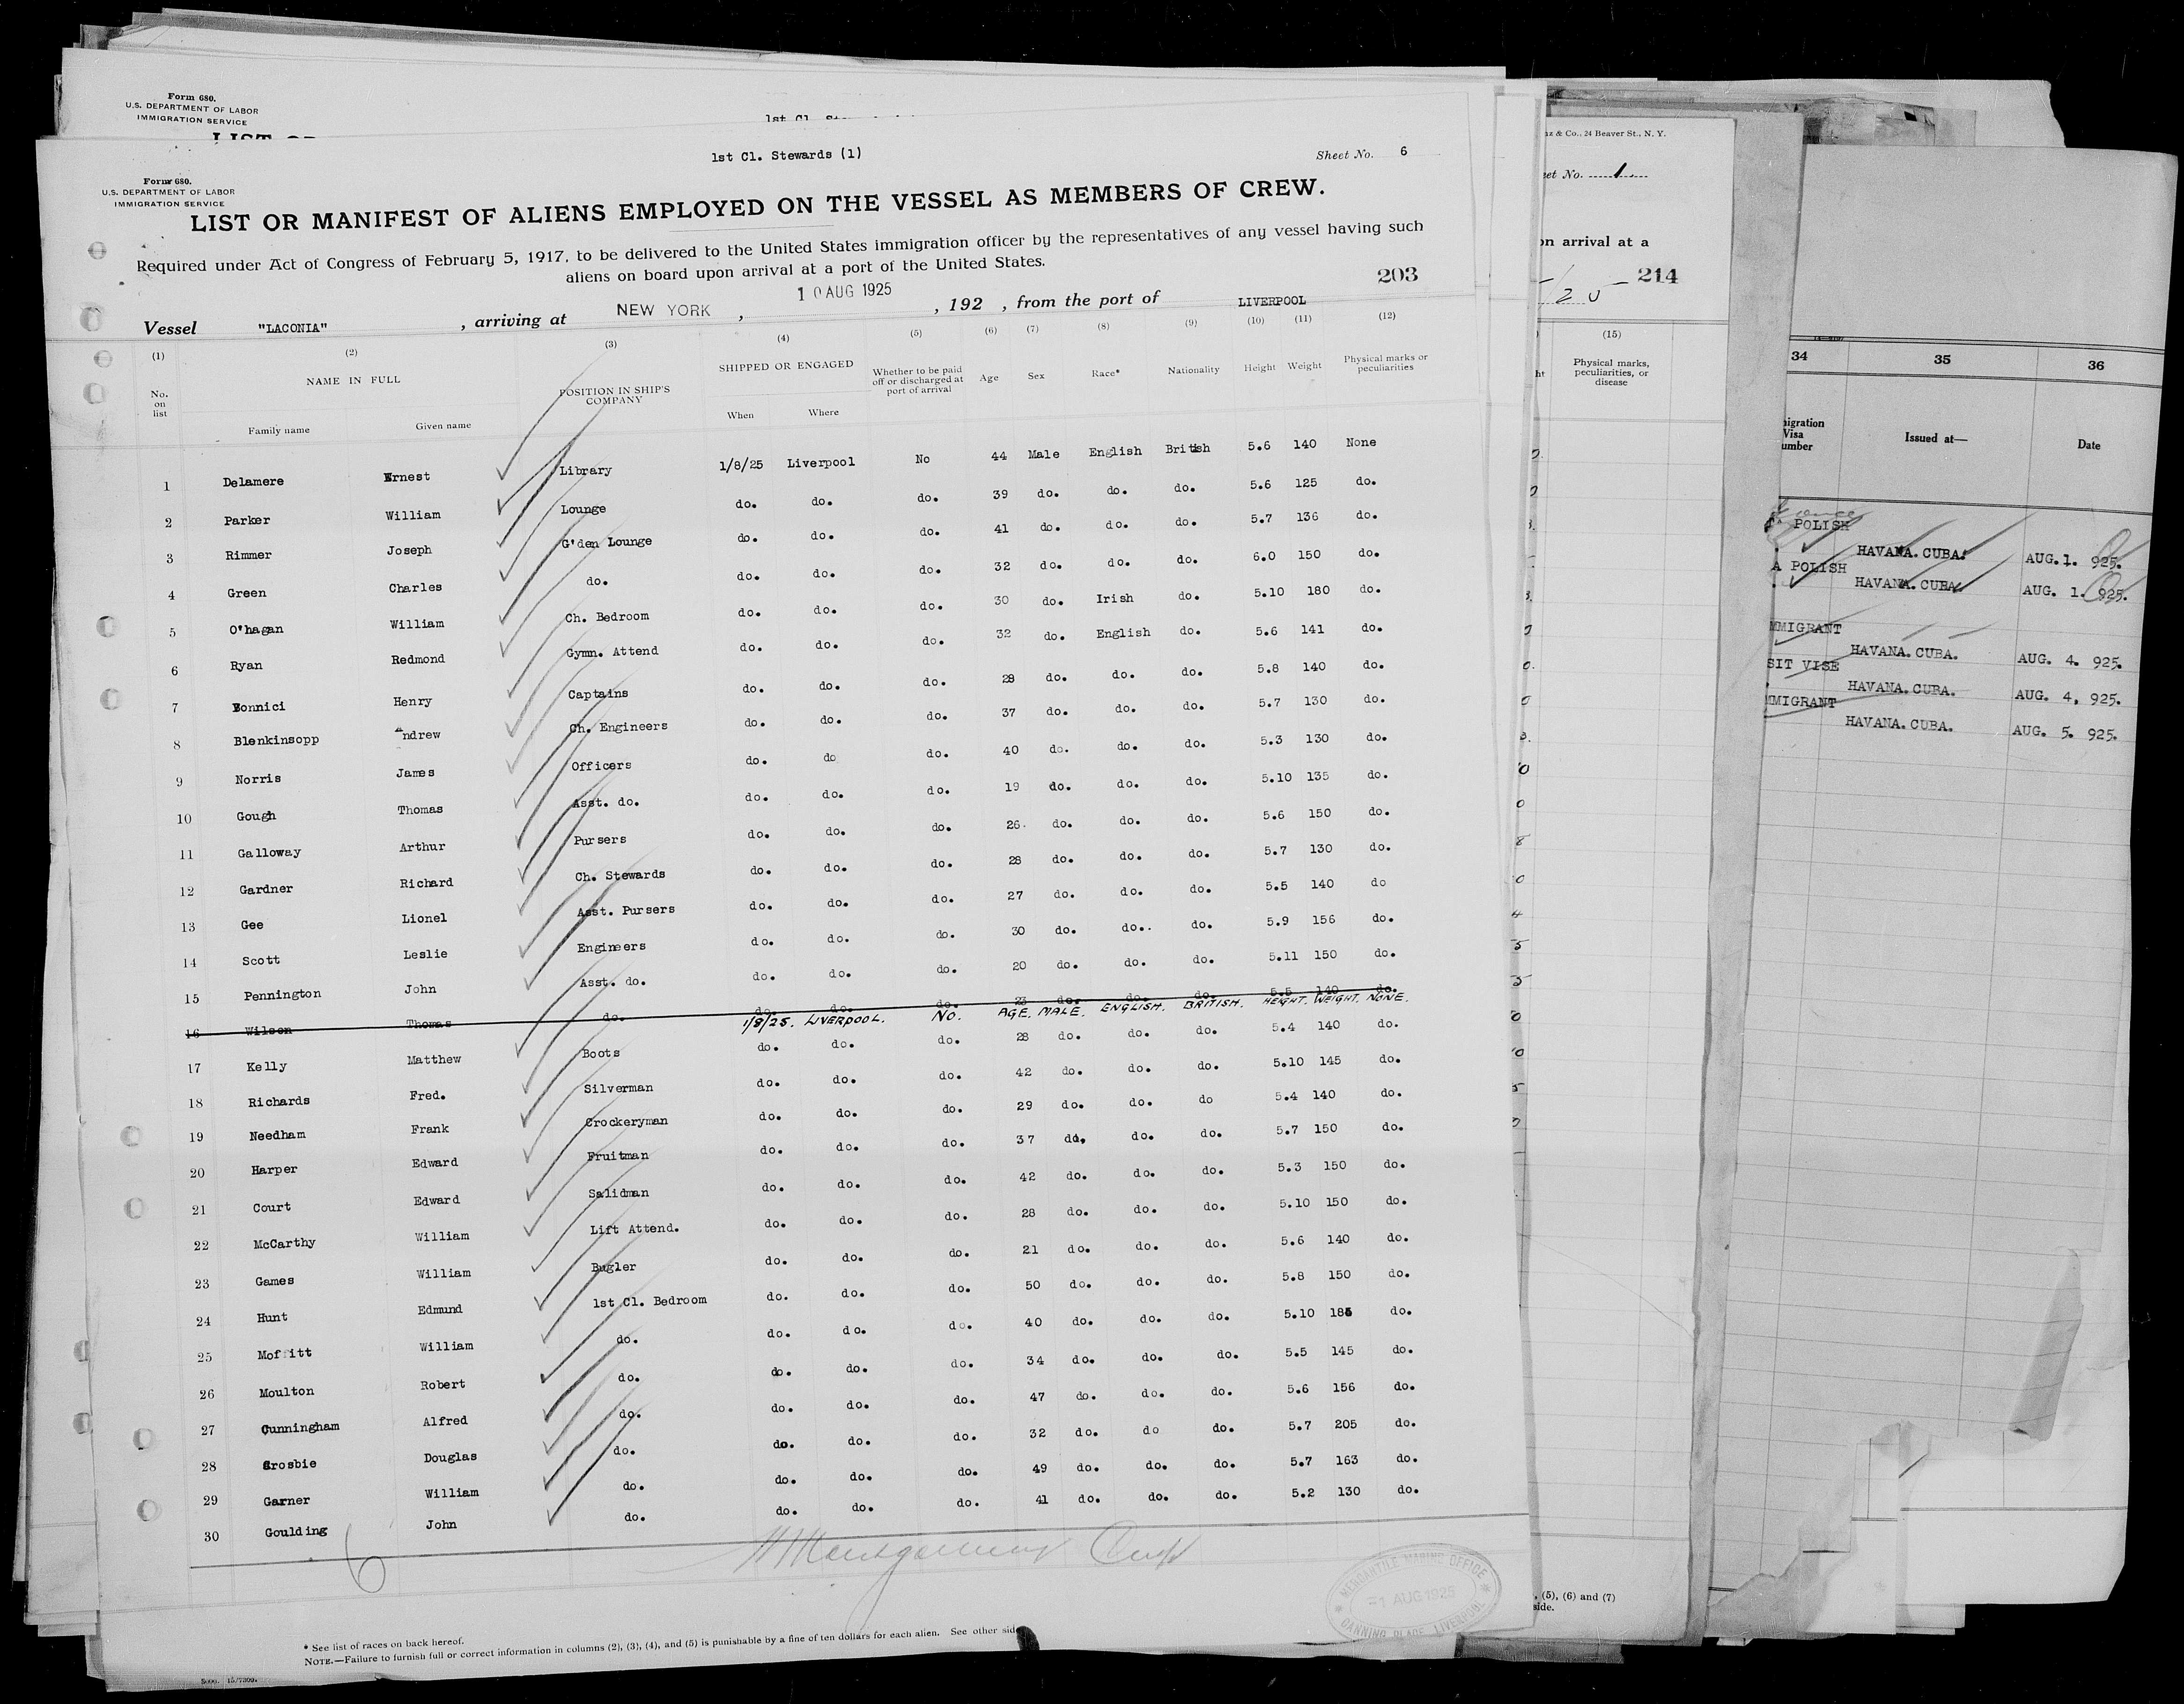 Form 680.
U.S. DEPARTMENT OF LABOR
IMMIGRATION SERVICE
1st Cl. Stewards (1)
Sheet No. 6
Form 680.
U.S. DEPARTMENT OF LABOR
IMMIGRATION SERVICE
LIST OR MANIFEST OF ALIENS EMPLOYED ON THE VESSEL AS MEMBERS OF CREW.
Required under Act of Congress of February 5, 1917, to be delivered to the United States immigration officer by the representatives of any vessel having such
aliens on board upon arrival at a port of the United States.
203
10 AUG 1925
Vessel "LACONIA", arriving at NEW YORK, , 192 , from the port of LIVERPOOL
(1) (2) (3) (4) (5) (6) (7) (8) (9) (10) (11) (12)
No. on list NAME IN FULL POSITION IN SHIP'S COMPANY SHIPPED OR ENGAGED Whether to be paid off or discharged at port of arrival Age Sex Race* Nationality Height Weight Physical marks or peculiarities
Family name Given name When Where
1 Delamere Ernest Library 1/8/25 Liverpool No 44 Male English British 5.6 140 None
2 Parker William Lounge do. do. do. 39 do. do. do. 5.6 125 do.
3 Rimmer Joseph G'den Lounge do. do. do. 41 do. do. do. 5.7 136 do.
4 Green Charles do. do. do. do. 32 do. do. do. 6.0 150 do.
5 O'hagan William Ch. Bedroom do. do. do. 30 do. Irish do. 5.10 180 do.
6 Ryan Redmond Gymn. Attend do. do. do. 32 do. English do. 5.6 141 do.
7 Bonnici Henry Captains do. do. do. 28 do. do. do. 5.8 140 do.
8 Blenkinsopp Andrew Ch. Engineers do. do. do. 37 do. do. do. 5.7 130 do.
9 Norris James Officers do. do do. 40 do. do. do. 5.3 130 do.
10 Gough Thomas Asst. do. do. do. do. 19 do. do. do. 5.10 135 do.
11 Galloway Arthur Pursers do. do. do. 26. do. do. do. 5.6 150 do.
12 Gardner Richard Ch. Stewards do. do. do. 28 do. do. do. 5.7 130 do.
13 Gee Lionel Asst. Pursers do. do. do. 27 do. do. do. 5.5 140 do
14 Scott Leslie Engineers do. do. do. 30 do. do.. do. 5.9 156 do.
15 Pennington John Asst. do. do. do. do. 20 do. do. do. 5.11 150 do.
16 Wilson Thomas do. do. do. do. 23 do. do. do. 5.5 140 do.
1/8/25. LIVERPOOL. NO. AGE. MALE. ENGLISH. BRITISH. HEIGHT. WEIGHT. NONE.
17 Kelly Matthew Boots do. do. do. 28 do. do. do. 5.4 140 do.
18 Richards Fred. Silverman do. do. do. 42 do. do. do. 5.10 145 do.
19 Needham Frank Crockeryman do. do. do. 29 do. do. do 5.4 140 do.
20 Harper Edward Fruitman do. do. do. 37 do. do. do. 5.7 150 do.
21 Court Edward Salidman do. do. do. 42 do. do. do. 5.3 150 do.
22 McCarthy William Lift Attend. do. do. do. 28 do. do. do. 5.10 150 do.
23 Games William Bugler do. do. do. 21 do. do. do. 5.6 140 do.
24 Hunt Edmund 1st Cl. Bedroom do. do. do. 50 do. do. do. 5.8 150 do.
25 Moffitt William do. do. do. do. 40 do. do. do. 5.10 185 do.
26 Moulton Robert do. do. do. do. 34 do. do. do. 5.5 145 do.
27 Cunningham Alfred do. do. do. do. 47 do. do. do. 5.6 156 do.
28 Crosbie Douglas do. do. do. do. 32 do. do do. 5.7 205 do.
29 Garner William do. do. do. do. 49 do. do. do. 5.7 163 do.
30 Goulding John do. do. do. do. 41 do. do. do. 5.2 130 do.
6
MERCANTILE MARINE OFFICE
1 AUG 1925
CANNING PLACE LIVERPOOL
* See list of races on back hereof.
NOTE.—Failure to furnish full or correct information in columns (2), (3), (4), and (5) is punishable by a fine of ten dollars for each alien. See other sid
& Co., 24 Beaver St., N. Y.
No. 1
arrival at a
214
(15)
Physical marks, peculiarities, or disease
(5), (6) and (7)
34 35 36
Visa
Issued at—
Date
POLISH
HAVANA. CUBA. AUG. 1. 925.
A POLISH
HAVANA. CUBA. AUG. 1. 925.
MMIGRANT
HAVANA. CUBA. AUG. 4. 925.
SIT VISE
HAVANA. CUBA. AUG. 4, 925.
MMIGRANT
HAVANA. CUBA. AUG. 5. 925.